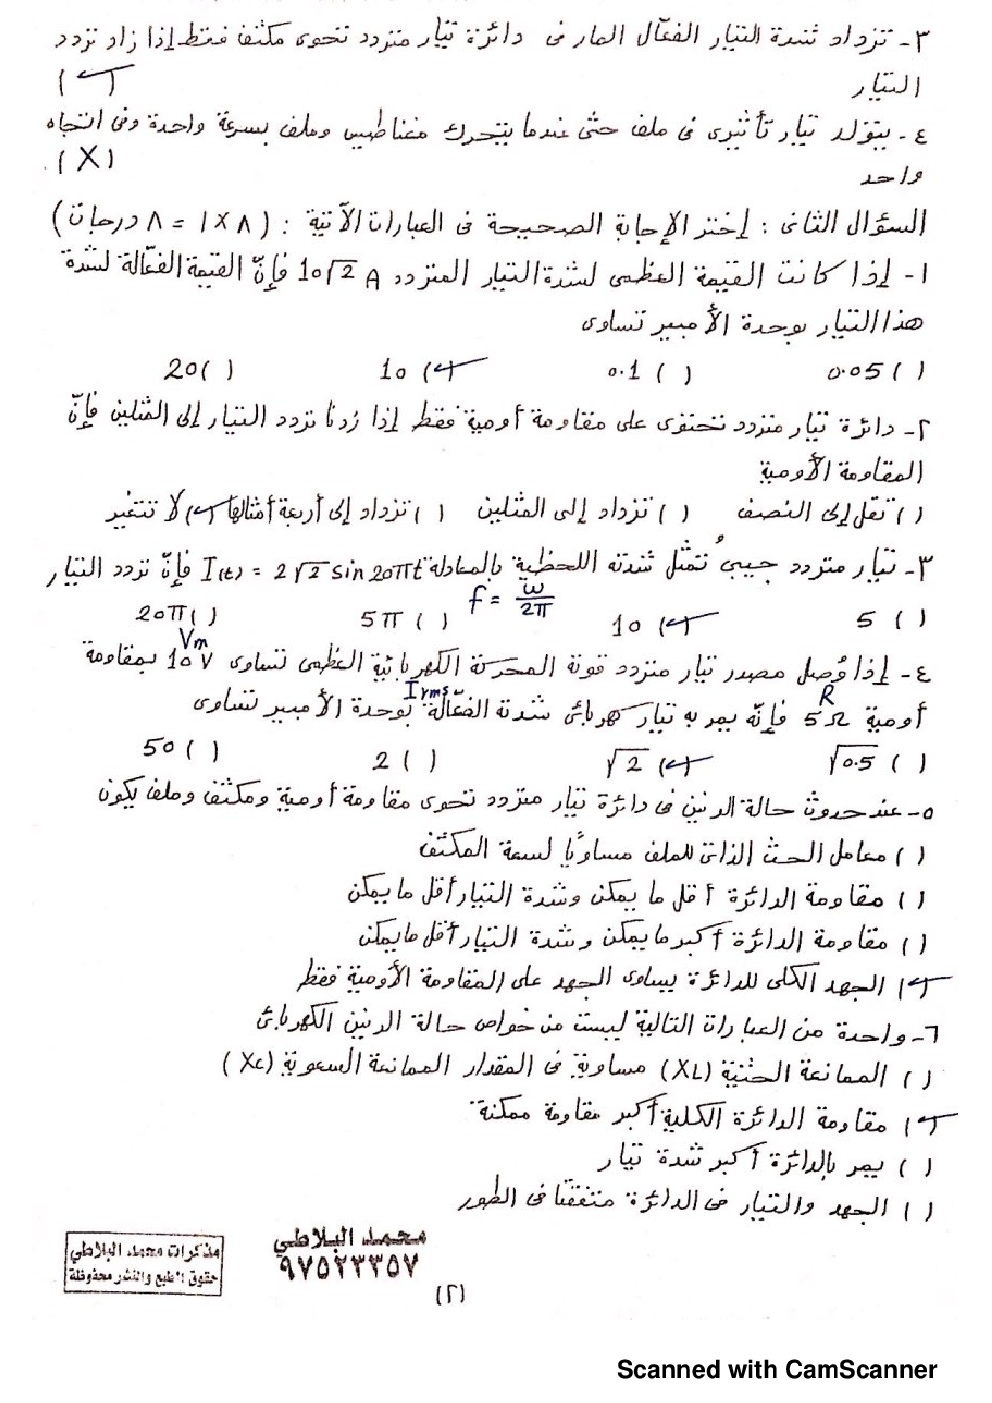 ٣- تزداد شدة التيار الفعّال المار فى دائرة تيار متردد تحوى مكثف فقط إذا زاد تردد
التيار (✓)
٤- يتولد تيار تأثيرى فى ملف حتى عندما يتحرك مغناطيس وملف بسرعة واحدة وفى اتجاه
واحد (X)
السؤال الثانى : إختر الإجابة الصحيحة فى العبارات الآتية : (٨ × ١ = ٨ درجات)
١- إذا كانت القيمة العظمى لشدة التيار المتردد 10√2 A فإنّ القيمة الفعّالة لشدة
هذا التيار بوحدة الأمبير تساوى
( ) 0.05 ( ) 0.1 (✓) 10 ( ) 20
٢- دائرة تيار متردد تحتوى على مقاومة أومية فقط إذا زدنا تردد التيار إلى المثلين فإنّ
المقاومة الأومية
( ) تقل إلى النصف ( ) تزداد إلى المثلين ( ) تزداد إلى أربعة أمثالها (✓) لا تتغير
٣- تيار متردد جيبى تُمثل شدته اللحظية بالمعادلة I(t) = 2√2 sin 20πt فإنّ تردد التيار
f = ω/2π
( ) 5 (✓) 10 ( ) 5π ( ) 20π
Vm
٤- إذا وُصل مصدر تيار متردد قوته المحركة الكهربائية العظمى تساوى 10 V بمقاومة
R Irms
أومية 5Ω فإنّه يمر به تيار كهربائى شدته الفعّالة بوحدة الأمبير تساوى
( ) √0.5 (✓) √2 ( ) 2 ( ) 50
٥- عند حدوث حالة الرنين فى دائرة تيار متردد تحوى مقاومة أومية ومكثف وملف يكون
( ) معامل الحث الذاتى للملف مساويًا لسعة المكثف
( ) مقاومة الدائرة أقل ما يمكن وشدة التيار أقل ما يمكن
( ) مقاومة الدائرة أكبر ما يمكن وشدة التيار أقل ما يمكن
(✓) الجهد الكلى للدائرة يساوى الجهد على المقاومة الأومية فقط
٦- واحدة من العبارات التالية ليست من خواص حالة الرنين الكهربائى
( ) الممانعة الحثية (XL) مساوية فى المقدار الممانعة السعوية (Xc)
(✓) مقاومة الدائرة الكلية أكبر مقاومة ممكنة
( ) يمر بالدائرة أكبر شدة تيار
( ) الجهد والتيار فى الدائرة متفقتا فى الطور
محمد البلاطي
٩٧٥٢٣٣٥٧
مذكرات محمد البلاطي
حقوق الطبع والنشر محفوظة
(٢)
Scanned with CamScanner